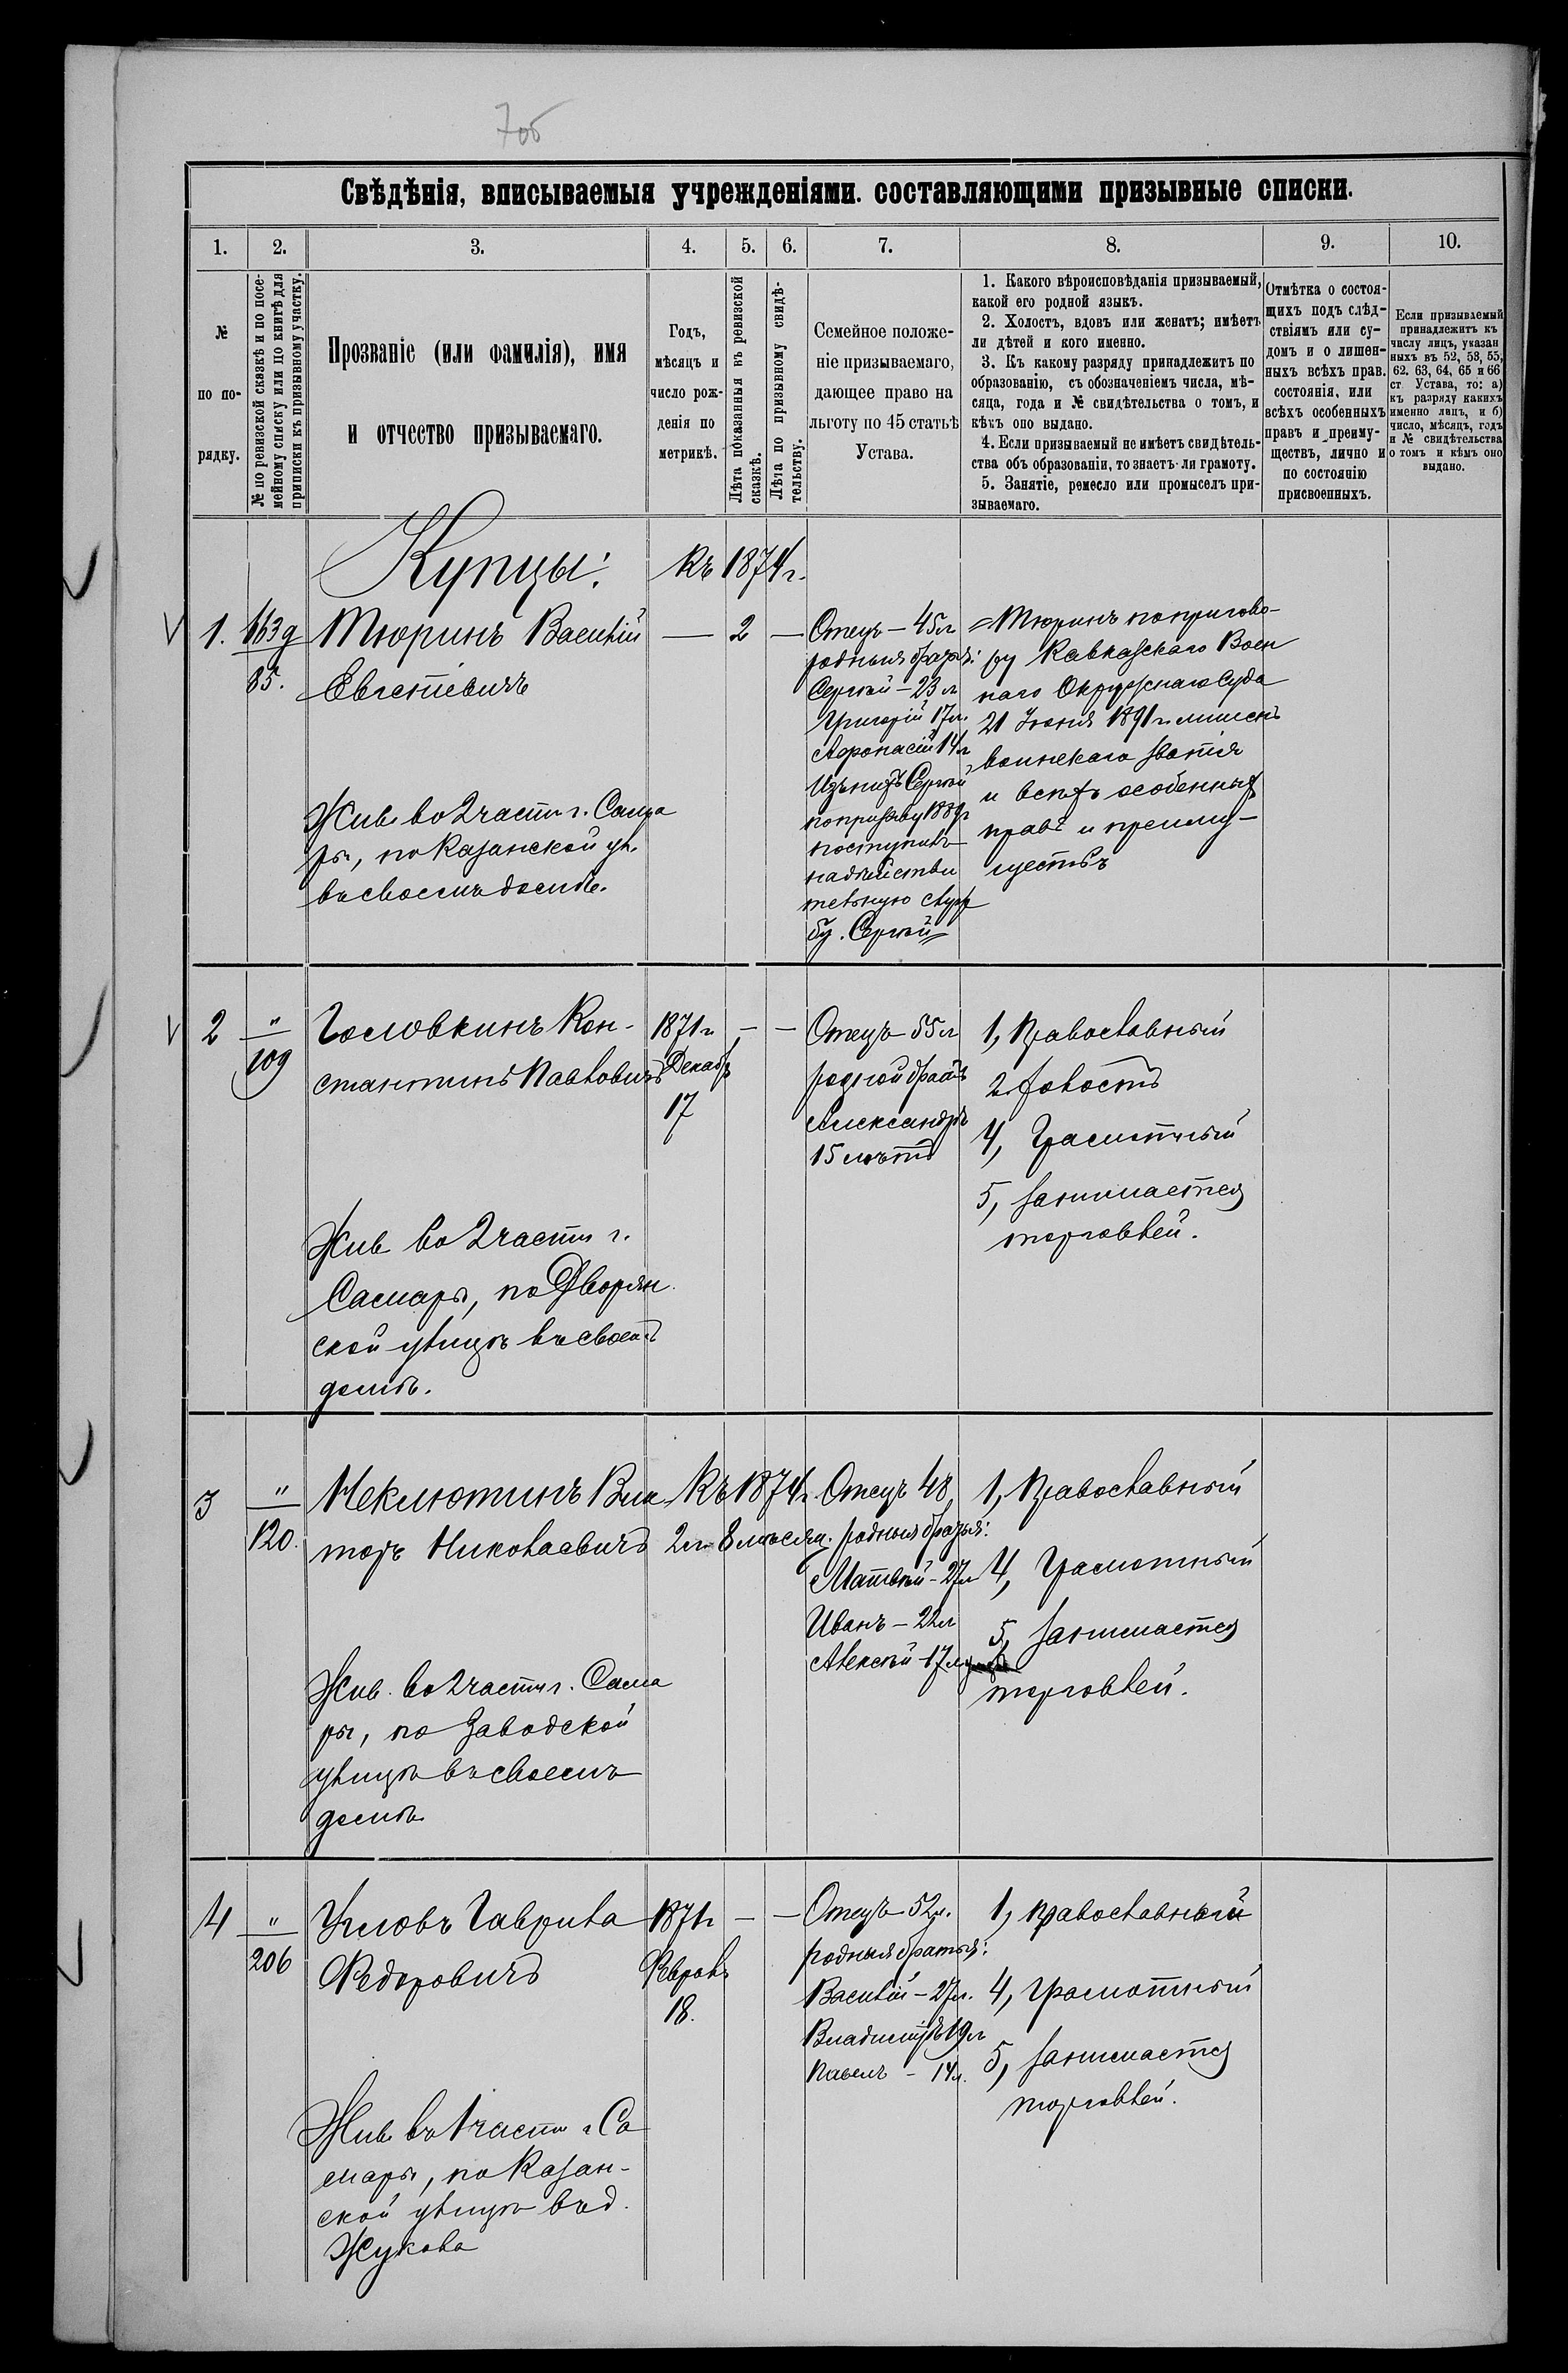 7об
Свѣдѣнія, вписываемыя учрежденіями. составляющими призывные списки.
1. 2. 3. 4. 5. 6. 7. 8. 9. 10.
№
по по-
рядку.
№ по ревизской сказкѣ и по посе-
мейному списку или по книгѣ для
приписки къ призывному участку.
Прозваніе (или фамилія), имя
и отчество призываемаго.
Годъ,
мѣсяцъ и
число рож-
денія по
метрикѣ.
Лѣта показанныя въ ревизской
сказкѣ.
Лѣта по призывному свидѣ-
тельству.
Семейное положе-
ніе призываемаго,
дающее право на
льготу по 45 статьѣ
Устава.
1. Какого вѣроисповѣданія призываемый,
какой его родной языкъ.
2. Холостъ, вдовъ или женатъ; имѣетъ
ли дѣтей и кого именно.
3. Къ какому разряду принадлежитъ по
образованію, съ обозначеніемъ числа, мѣ-
сяца, года и № свидѣтельства о томъ, и
кѣмъ оно выдано.
4. Если призываемый не имѣетъ свидѣтель-
ства объ образованіи, то знаетъ-ли грамоту.
5. Занятіе, ремесло или промыселъ при-
зываемаго.
Отмѣтка о состоя-
щихъ подъ слѣд-
ствіямъ или су-
домъ и о лишен-
ныхъ всѣхъ прав.
состоянія, или
всѣхъ особенныхъ
правъ и преиму-
ществъ, лично и
по состоянію
присвоенныхъ.
Если призываемый
принадлежитъ къ
числу лицъ, указан
ныхъ въ 52, 53, 55,
62. 63, 64, 65 и 66
ст Устава, то: а)
къ разряду какихъ
именно лицъ, и б)
число, мѣсяцъ, годъ
и № свидѣтельства
о томъ и кѣмъ оно
выдано.
Купцы:
Къ 1874 г.
1. 163 д
85.
Тюринъ Василій
Евгеніевичъ
Жив. во 2 части г. Сама
ры, по Казанской ул.
въ своемъ домѣ.
— 2 —
Отецъ — 45 л
родныя братья:
Сергѣй — 23 л
Григорій 17 л.
Афонасій 14 л
Изъ нихъ Сергѣй
по призыву 1889 г
поступилъ
на дѣйстви
тельную служ
бу. Сергѣй
= Тюринъ по пригово-
ру Кавказскаго Воен
наго Окружнаго Суда
21 Іюня 1891 г. лишенъ
воинскаго званія
и всѣхъ особенныхъ
правъ и преиму-
ществъ
2 "
109
Головкинъ Кон-
стантинъ Павловичъ
Жив во 2 части г.
Самары, по Дворян
ской улицѣ въ своемъ
домѣ.
1871 г
Декабр
17
— —
Отецъ — 55 л
родной братъ
Александръ
15 лѣтъ
1, Православный
2. Холостъ
4, Грамотный
5, занимается
торговлей.
3 "
120.
Неклютинъ Вик
торъ Николаевичъ
Жив. во 2 части г. Сама
ры, по Заводской
улицѣ въ своемъ
домѣ
Къ 1874 г
2 г. 8 мѣсяц.
Отецъ 48
родныя братья:
Матвѣй — 27 л
Иванъ — 22 л
Алексѣй — 17 л
1, Православный
4, Грамотный
5, занимается
торговлей.
4 "
206
Угловъ Гаврила
Федоровичъ
Жив. въ 1 части г Са
мары, по Казан-
ской улицѣ въ д.
Жукова
1871 г
Феврал
18.
— —
Отецъ — 52 л.
родныя братья:
Василій — 27 л.
Владиміръ 19 л
Павелъ — 14 л.
1, православный
4, грамотный
5, занимается
торговлей.